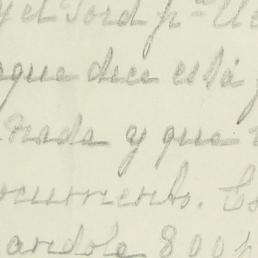 y el Ford pa
que dice está
nada y que
ocumento.
andole 800